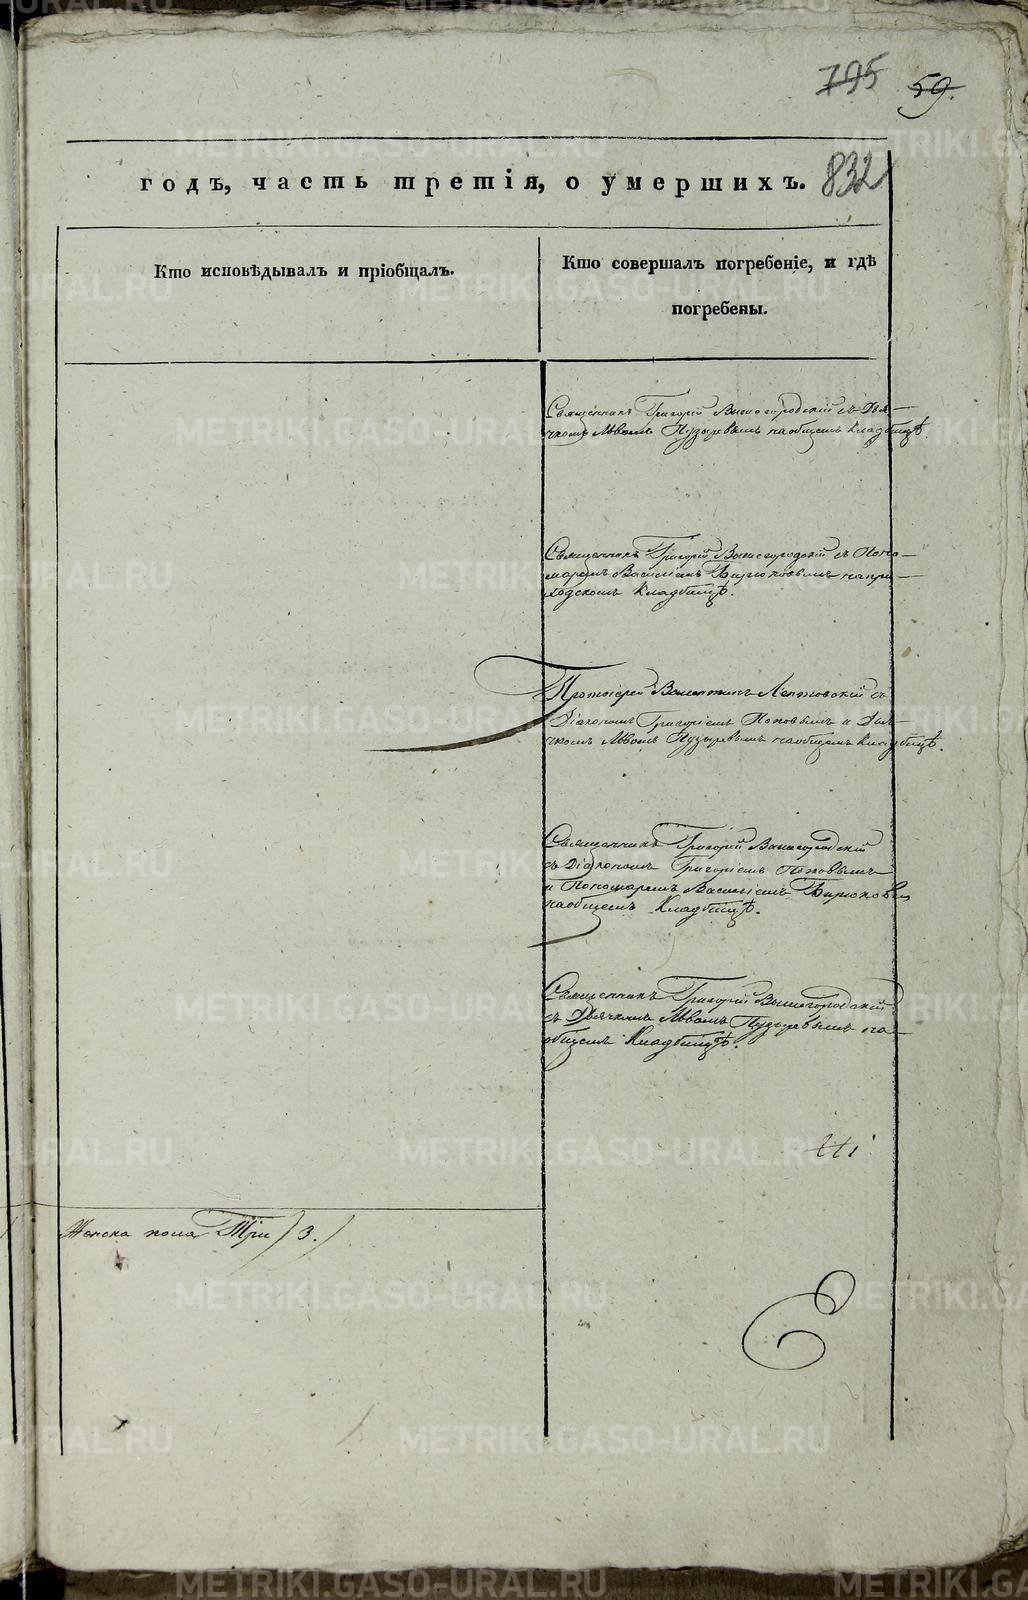 795 59.
832
годъ, часть третія, о умершихъ.
Кто исповѣдывалъ и пріобщалъ.
Кто совершалъ погребеніе, и гдѣ
погребены.
Священникъ Григорій Вышегородскій съ Дья-
чкомъ Львомъ Пузыревымъ наобщемъ Кладбищѣ.
Священникъ Григорій Вышегородскій съ Поно-
маремъ Василіемъ Бирюковымъ напри-
ходскомъ Кладбищѣ.
Протоіерей Валентинъ съ
Діакономъ Григоріемъ Поповымъ и Дья-
чкомъ Львомъ Пузыревымъ наобщемъ Кладбищѣ.
Священникъ Григорій Вышегородскій
съ Діакономъ Григоріемъ Поповымъ
и Пономаремъ Василіемъ Бирюковы
наобщемъ Кладбищѣ.
Священникъ Григорій Вышегородскій
съ Дьячкомъ Львомъ Пузыревымъ на-
общемъ Кладбищѣ.
Женска пола Три / 3. /
METRIKI.GASO-URAL.RU